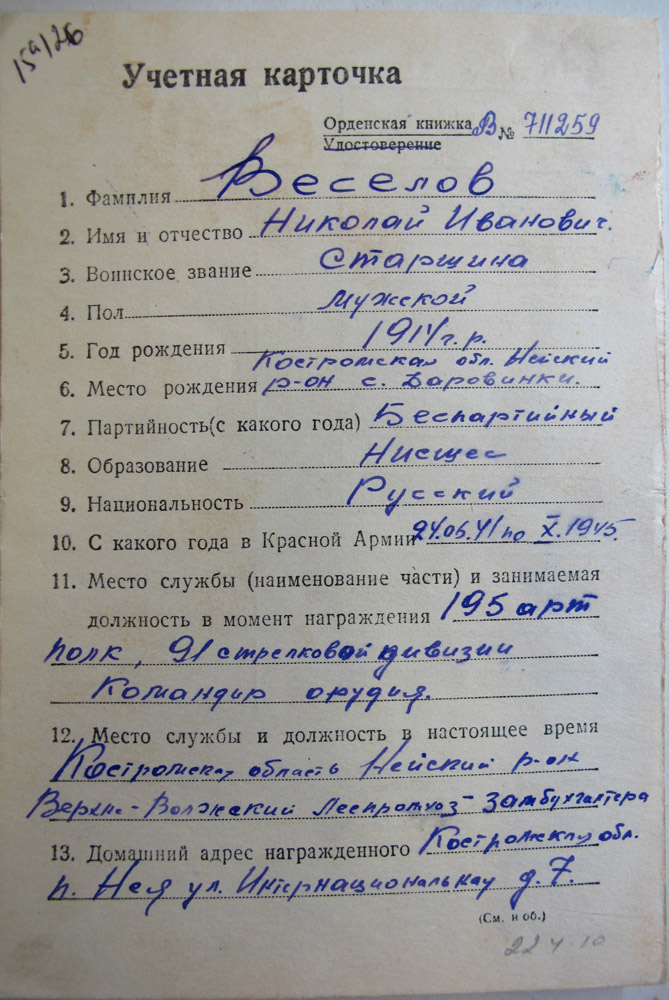 15а/26
Учетная карточка
Орденская книжка В № 711259
Удостоверение
1. Фамилия Веселов
2. Имя и отчество Николай Иванович.
3. Воинское звание Старшина
4. Пол мужской
5. Год рождения 1914 г.р.
Костромская обл. Нейский
6. Место рождения р-он с. Даровинки.
7. Партийность (с какого года) Беспартийный
8. Образование Нисшее
9. Национальность Русский
10. С какого года в Красной Армии 24.06.41 по X.1945.
11. Место службы (наименование части) и занимаемая
должность в момент награждения 195 арт
полк, 91 стрелковой дивизии
Командир орудия.
12. Место службы и должность в настоящее время
Костромская область Нейский р-он
Верхне-Волжский Леспромхоз замбухгалтера
13. Домашний адрес награжденного Костромская обл.
п. Нея ул. Интернациональная д. 7.
(См. н об.)
22 4-10